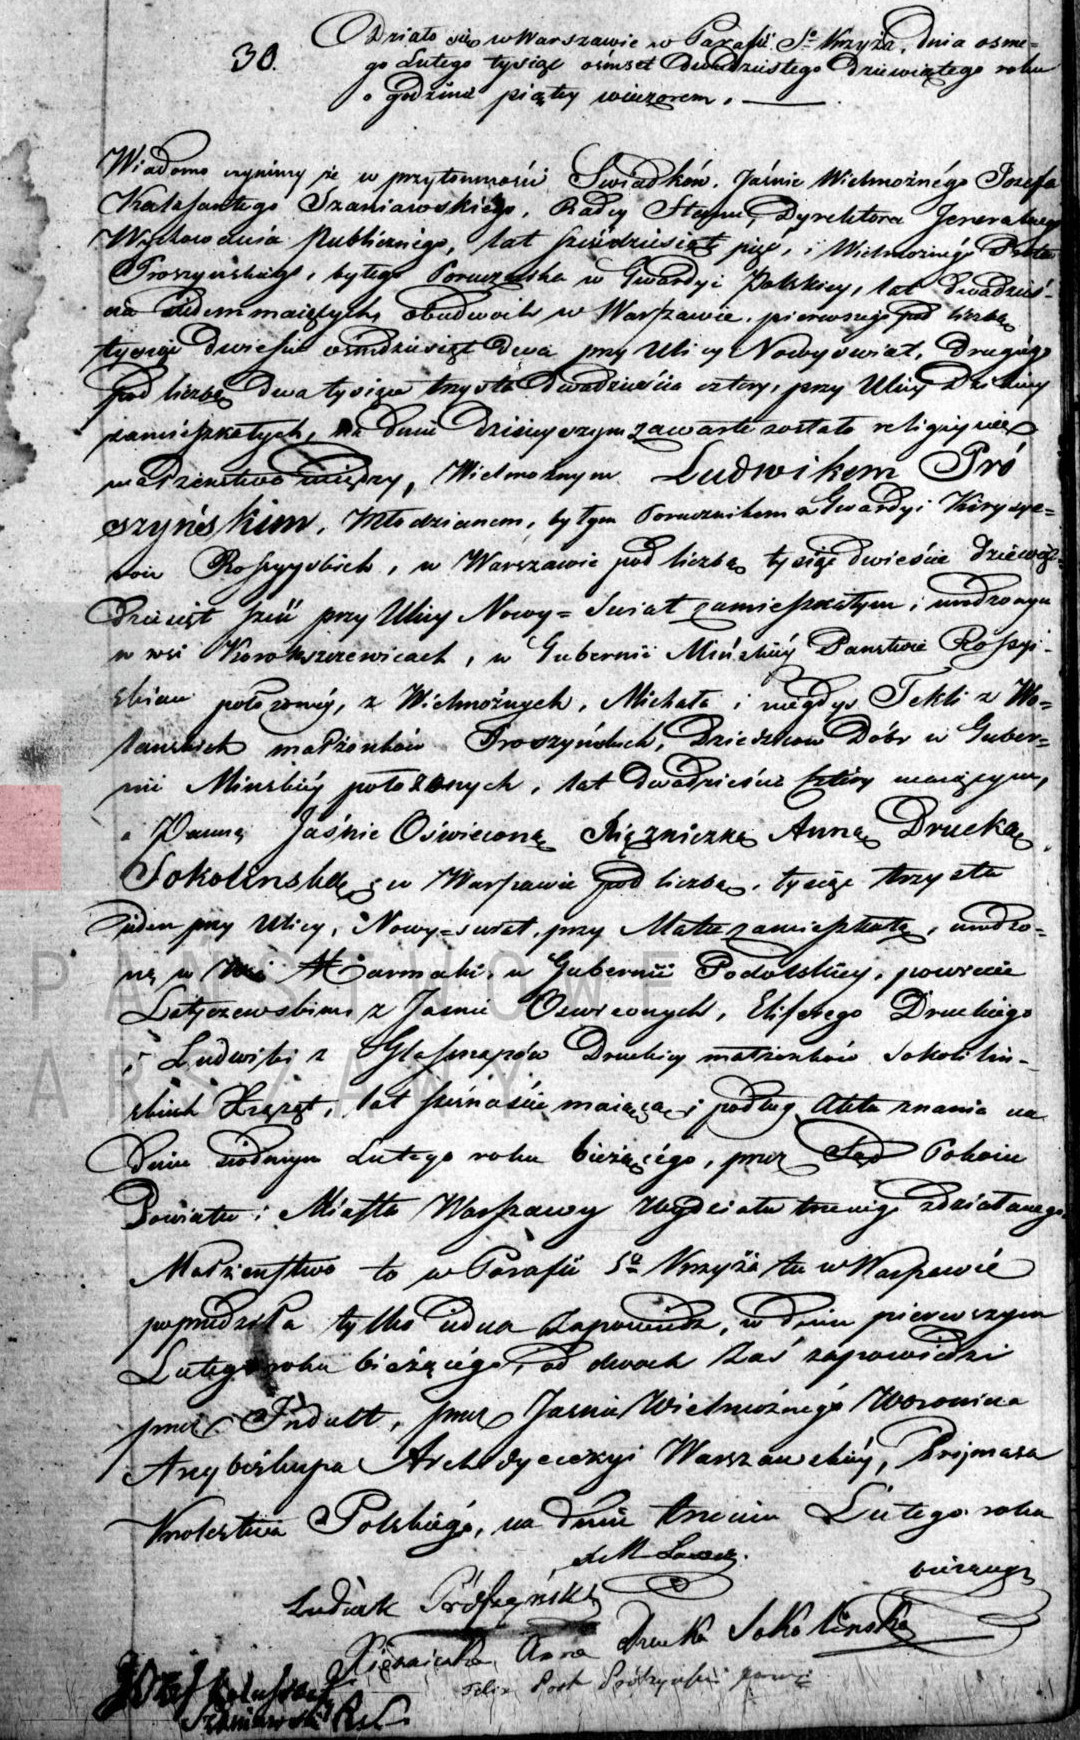 30.
Działo się w Warszawie w Parafii Sgo Krzyża, dnia osme-
go Lutego tysiąc ośmset dwudziestego dziewiątego roku
o godzinie piątey wieczorem.
Wiadomo czynimy że w przytomności Swiadków, Jaśnie Wielmożnego Józefa
Kalasantego Szaniawskiego, Radcy Stanu, Dyrektora Jeneralnego
Wychowania Publicznego, lat sześdziesiąt pięć, i Wielmożnego
Proszyńskiego, byłego Porucznika w Gwardyi Polskiey, lat dwadzieś-
cia siedem maiących, obudwoch w Warszawie, pierwszego pod liczbą
tysiąc dwieście ośmdziesiąt dwa przy Ulicy Nowyswiat, drugiego
pod liczbą dwa tysiące trzysta dwadzieścia cztery, przy Ulicy Dzikiey
zamieszkałych, na dniu dzisieyszym zawarte zostało religiyne
małżeństwo między, Wielmożnym Ludwikem Pró
szyńskim, Młodzianem, byłym Porucznikem Gwardyi Kirysye-
row Rossyyskich, w Warszawie pod liczbą tysiąc dwieście dziewięć-
dziesiąt sześć przy Ulicy Nowy=Swiat zamieszkałym i urodzonym
w wsi w Gubernii Mińskiéy Państwie Rossyi-
skiem położonéy, z Wielmożnych, Michała i niegdys Tekli z Wo-
łańskich małżonków Proszyńskich, Dziedziców Dóbr w Guber-
nii Minskiéy położonych, lat dwadzieścia cztéry maiącym,
a Panną Jaśnie Oświeconą Xiężniczką Anną Drucką
Sokolinską, w Warszawie pod liczbą, tysiąc trzysta
jeden przy Ulicy, Nowy=swiat, przy Matce zamieszkałą, urodzo-
ną w Wsi w Gubernii Podolskiey, powiecie
Latyczewskim z Jasnie Oswieconych, Eliferego Druckiego
i Ludwiki z Druckich małżonków Sokoliń-
skich Xiążąt, lat szesnaście maiącą i podług Aktu znania na
dniu siódmym Lutego roku bieżącego, przez Sąd Pokoiu
Powiatu i Miasta Warszawy Wydziału trzeciego zdziałanego.
Małżeństwo to w Parafii Sgo Krzyża tu w Warszawie
poprzedziła tylko iedna Zapowiedz, w dniu pierwszym
Lutego roku bieżącego, od dwoch zaś zapowiedzi
przez Indult, przez Jasnie Wielmożnego Woronicza
Arcybiskupa Archidyecezyi Warszawskiéy, Prymasa
Krolestwa Polskiego, na dniu trzecim Lutego roku
bieżącego
Ludwik Prószyński
Xiężniczka Anna Drucka Sokolinska
Felix Prószyński
Józef Kalasanty
Szaniawski
PAŃSTWOWE
ARSZAWY